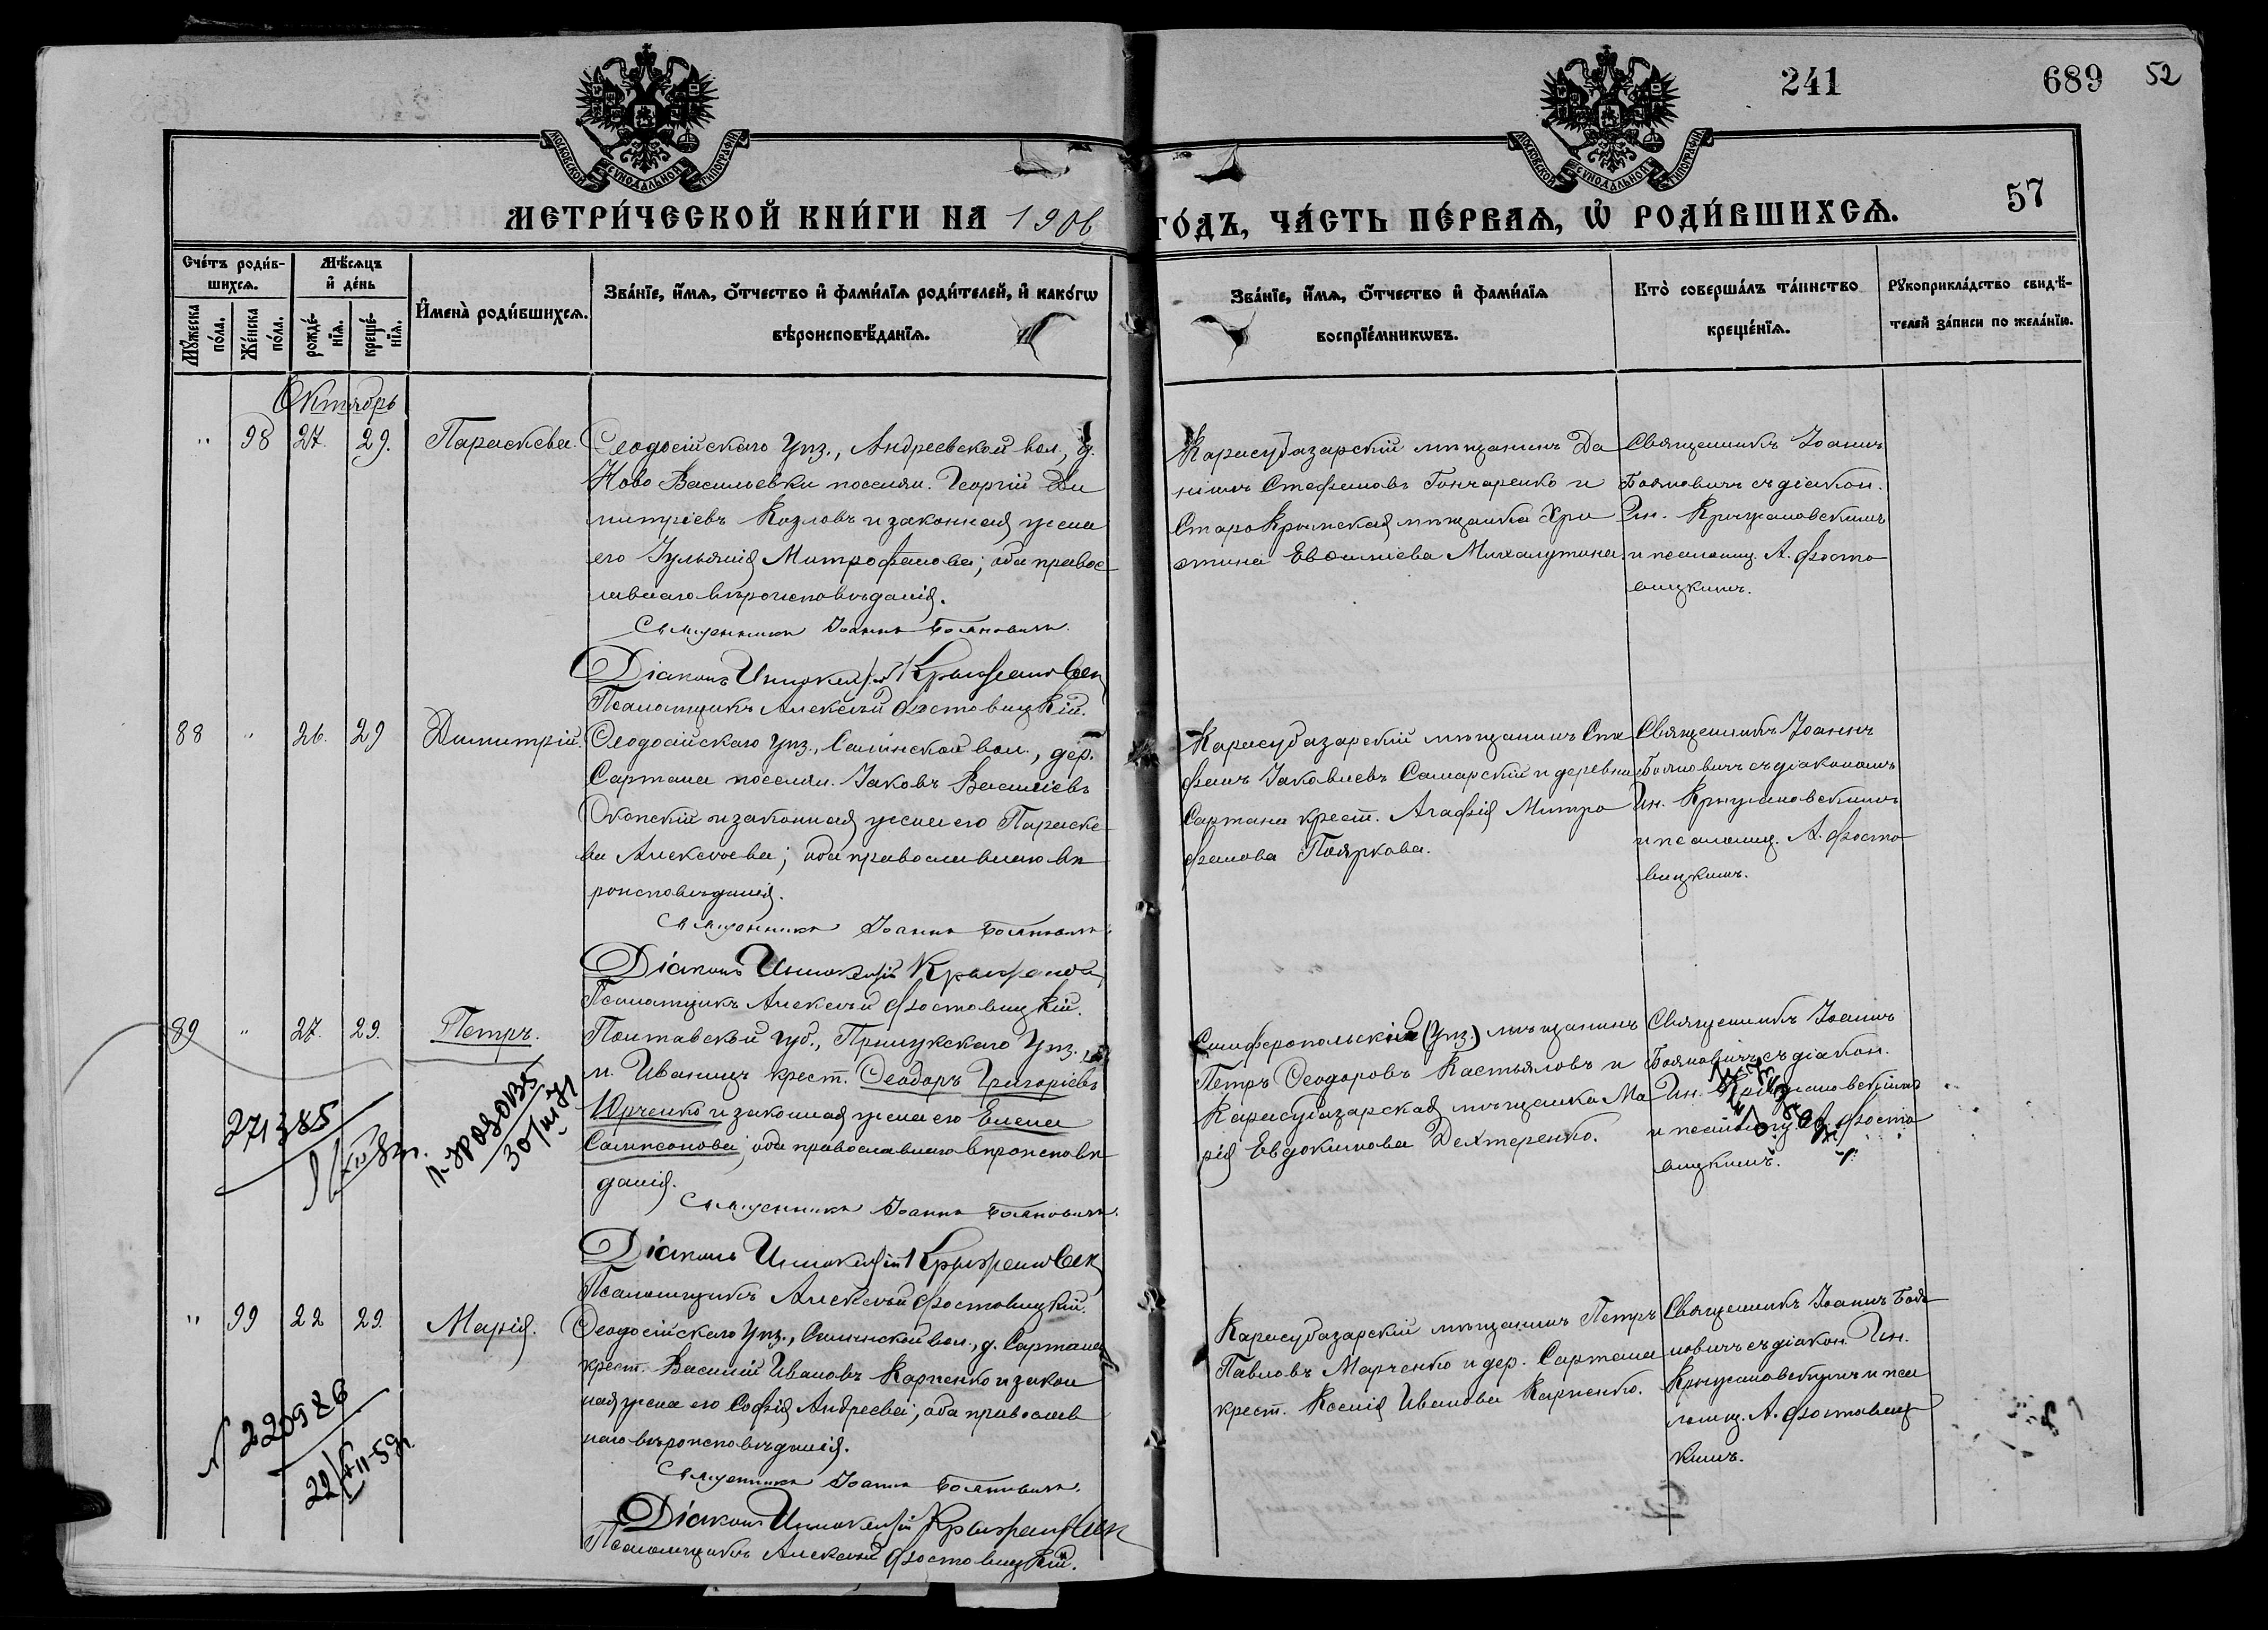 241
689 52
57
МОСКОВСКОЙ СУНОДАЛЬНОЙ ТИПОГРАФІИ
МОСКОВСКОЙ СУНОДАЛЬНОЙ ТИПОГРАФІИ
МЕТРИ́ЧЕСКОЙ КНИ́ГИ НА 1906 ГО́ДЪ, ЧА́СТЬ ПЕ́РВАЯ, Ѡ҆ РОДИ́ВШИХСѦ.
Сче́тъ роди́в-
шихсѧ.
Мꙋ́жеска по́ла.
Же́нска по́ла.
Мѣ́сѧцъ
и҆ де́нь
рожде́-
нїѧ.
креще́-
нїѧ.
И҆мена̀ роди́вшихсѧ.
Зва́нїе, и҆́мѧ, ѻ҆́тчество и҆ фами́лїѧ роди́телей, и҆ како́гѡ
вѣроисповѣ́данїѧ.
Зва́нїе, и҆́мѧ, ѻ҆́тчество и҆ фами́лїѧ
воспрїе́мникѡвъ.
Кто̀ соверша́лъ та́инство
креще́нїѧ.
Рꙋкоприкла́дство свидѣ́-
телей за́писи по жела́нїю.
Октябрь
" 98 27. 29. Параскева.
Ѳеодосійскаго Уѣз., Андреевской вол., д.
Ново Васильевки поселян. Георгій Ди
митріевъ Козловъ и законная жена
его Іуліанія Митрофанова; оба правос
лавнаго вѣроисповѣданія.
Священникъ Іоаннъ Бояновичъ.
Діаконъ Иннокентій Крыжановск
Псаломщикъ Алексѣй Фостовицкій.
Карасубазарскій мѣщанинъ Да
ніилъ Стефановъ Гончаренко и
Старо Крымская мѣщанка Хри
стина Евѳиміева Михалутина.
Священникъ Іоаннъ
Бояновичъ съ діакон.
Ин. Крыжановскимъ
и псаломщ. А. Фосто
вицкимъ.
88 " 26. 29 Димитрій.
Ѳеодосійскаго Уѣз., Салынской вол., дер.
Сартана поселян. Іаковъ Василіевъ
Окопскій и законная жена его Параске
ва Алексѣева; оба православнаго вѣ
роисповѣданія.
Священникъ Іоаннъ Бояновичъ.
Діаконъ Иннокентій Крыжанов
Псаломщикъ Алексѣй Фостовицкій.
Карасубазарскій мѣщанинъ Сте
фанъ Іаковлевъ Самарскій и деревни
Сартана крест. Агафія Митро
фанова Пояркова.
Священникъ Іоаннъ
Бояновичъ съ діакономъ
Ин. Крыжановскимъ
и псаломщ. А. Фосто
вицкимъ.
89 " 27. 29. Петръ.
Полтавской губ., Прилукскаго Уѣз.
м. Иваницъ крест. Ѳеодоръ Григоріевъ
Юрченко и законная жена его Елена
Сампсонова; оба православнаго вѣроисповѣ
данія.
Священникъ Іоаннъ Бояновичъ.
Діаконъ Иннокентій Крыжановск
Псаломщикъ Алексѣй Фостовицкій.
271385
Симферопольскій (Уѣз.) мѣщанинъ
Петръ Ѳеодоровъ Кастьяловъ и
Карасубазарская мѣщанка Ма
рія Евдокимова Дехтеренко.
Священникъ Іоаннъ
Бояновичъ съ діакон.
Ин. Крыжановскимъ
и псаломщ. А. Фосто
вицкимъ.
" 99 22 29. Марія.
Ѳеодосійскаго Уѣз., Салынской вол., д. Сартана
крест. Василій Ивановъ Карпенко и закон
ная жена его Софія Андреева; оба православ
наго вѣроисповѣданія.
Священникъ Іоаннъ Бояновичъ.
Діаконъ Иннокентій Крыжановск
Псаломщикъ Алексѣй Фостовицкій.
220986
Карасубазарскій мѣщанинъ Петръ
Павловъ Марченко и дер. Сартана
крест. Ксенія Иванова Карпенко.
Священникъ Іоаннъ Боя
новичъ съ діакон. Ин.
Крыжановскимъ и пса
ломщ. А. Фостовиц
кимъ.